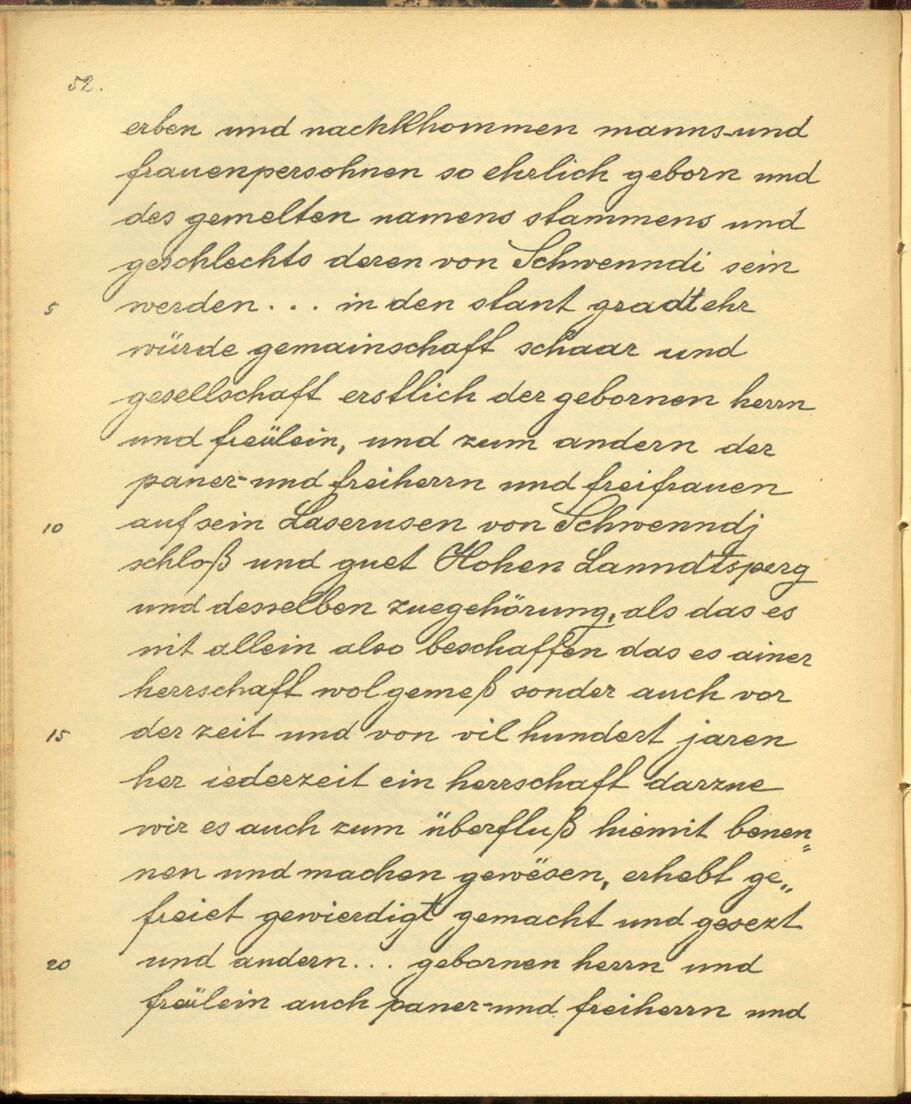 52.
erben und nachkhommen manns-und
frauenpersohnen so ehrlich geborn und
des gemelten namens stammens und
geschlechts deren von Schwenndi sein
5 werden... in den stant gradt ehr
würde gemainschaft schaar und
gesellschaft erstlich der gebornen herrn
und freülein, und zum andern der
paner-und freiherrn und freifrauen
10 auf sein Laserusen von Schwenndj
schloß und guet Hohen Lanndtsperg
und desselben zuegehörung, als das es
nit allein also beschaffen das es ainer
herrschaft wol gemeß sonder auch vor
15 der zeit und von vil hundert jaren
her iederzeit ein herrschaft darzue
wir es auch zum überfluß hiemit benen„
nen und machen gewësen, erhebt ge„
freiet gewierdigt gemacht und gesezt
20 und andern... gebornen herrn und
freülein auch paner-und freiherrn und